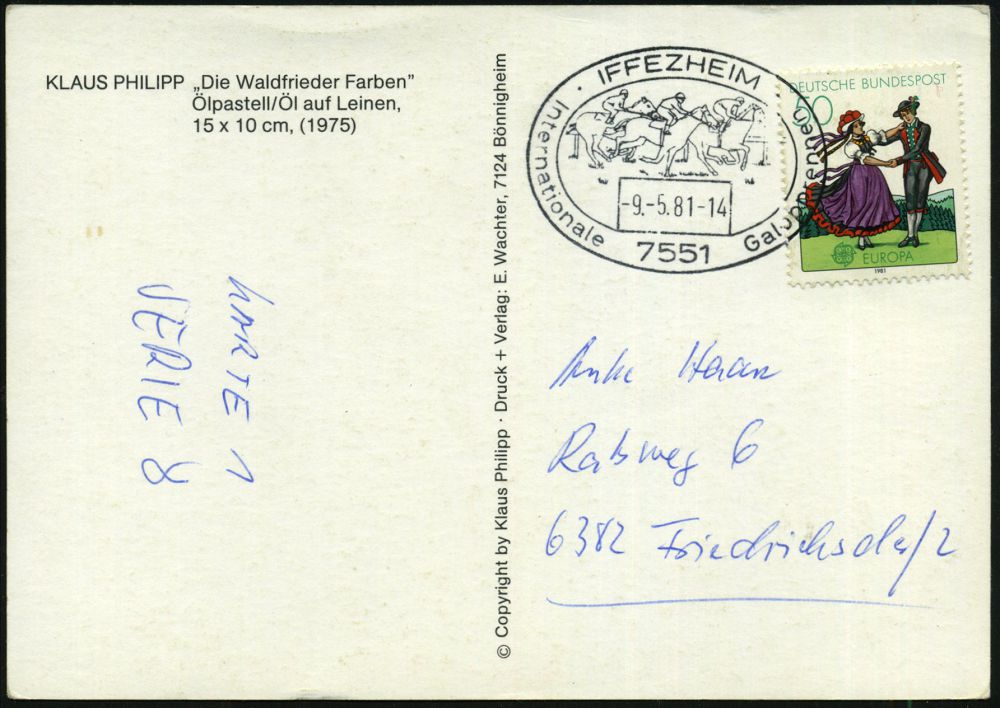 KLAUS PHILIPP „Die Waldfrieder Farben”
Ölpastell/Öl auf Leinen,
15 x 10 cm, (1975)
KARTE 1
SERIE 8
© Copyright by Klaus Philipp · Druck + Verlag: E. Wachter, 7124 Bönnigheim
· IFFEZHEIM ·
Internationale Galopprennen
-9.-5.81-14
7551
DEUTSCHE BUNDESPOST
50
EUROPA
1981
Anke Haan
6
6382 Friedrichsdorf/2